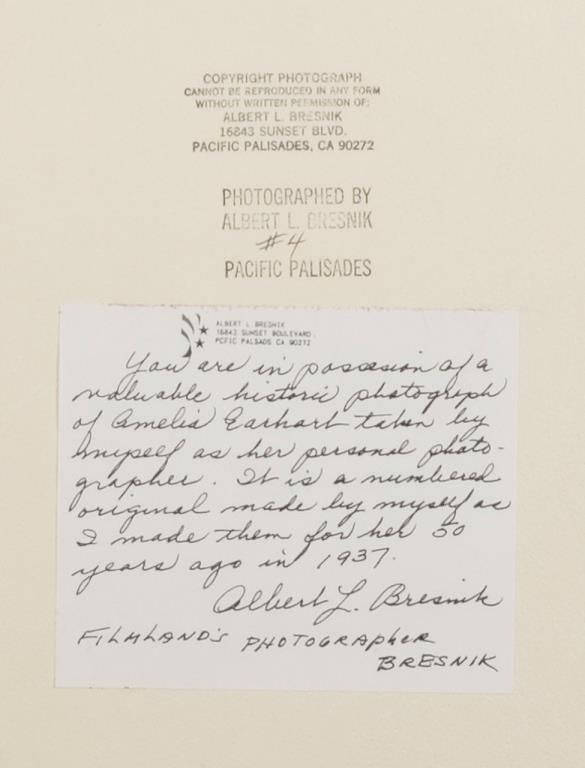 COPYRIGHT PHOTOGRAPH
CANNOT BE REPRODUCED IN ANY FORM
WITHOUT WRITTEN PERMISSION OF:
ALBERT L. BRESNIK
16843 SUNSET BLVD.
PACIFIC PALISADES, CA 90272
PHOTOGRAPHED BY
ALBERT L. BRESNIK
#4
PACIFIC PALISADES
ALBERT L BRESNIK
16843 SUNSET BOULEVARD.
PCFIC PALSADS CA 90272
You are in possesion of a
valuable historic photograph
of Amelia Earhart taken by
myself as her personal photo-
grapher. It is a numbered
original made by myself as
I made them for her 50
years ago in 1937.
Albert L. Bresnik
FILMLAND'S PHOTOGRAPHER
BRESNIK